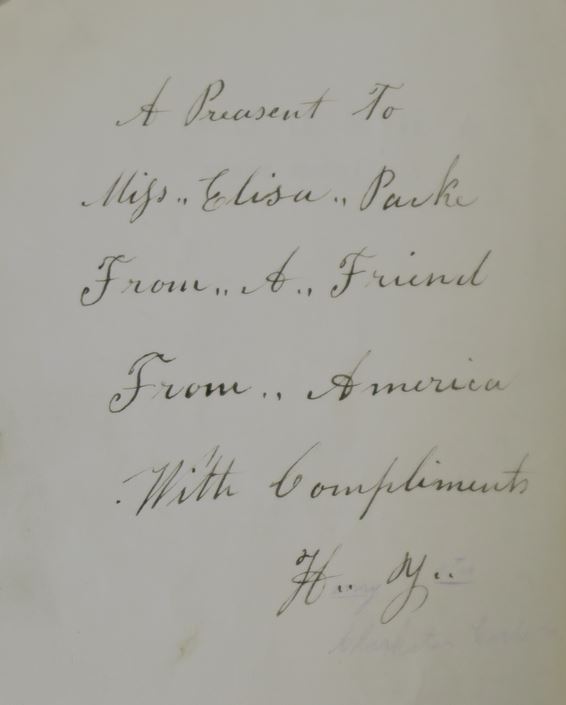 A Preasent To
Miss.. Elisa.. Parke
From.. A.. Friend
From.. America
With Compliments
H.. Y..